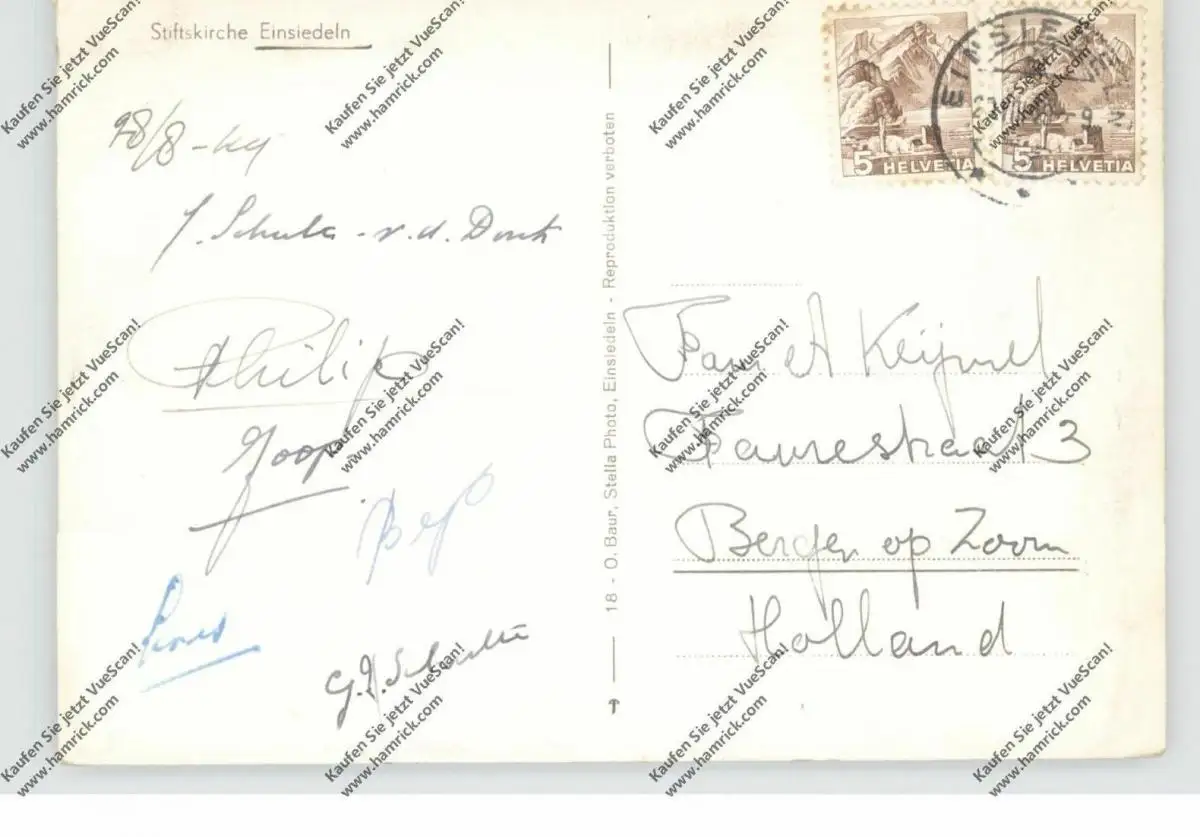 Stiftskirche Einsiedeln
28/8-49
J. Schulz - v.d. Donk
Philip
Joop
Bep
G.J. Schulte
18 - O. Baur, Stella Photo, Einsiedeln - Reproduktion verboten
5 HELVETIA
5 HELVETIA
EINSIEDELN
Fam A Keijzel
Faurestraat 3
Bergen op Zoom
Holland
Kaufen Sie jetzt VueScan!
www.hamrick.com